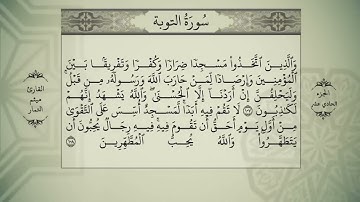 سُورَةُ التوبة
وَٱلَّذِينَ ٱتَّخَذُوا۟ مَسْجِدًا ضِرَارًا وَكُفْرًا وَتَفْرِيقًۢا بَيْنَ
ٱلْمُؤْمِنِينَ وَإِرْصَادًا لِّمَنْ حَارَبَ ٱللَّهَ وَرَسُولَهُۥ مِن قَبْلُ ۚ
وَلَيَحْلِفُنَّ إِنْ أَرَدْنَآ إِلَّا ٱلْحُسْنَىٰ ۖ وَٱللَّهُ يَشْهَدُ إِنَّهُمْ
لَكَـٰذِبُونَ ﴿١٠٧﴾ لَا تَقُمْ فِيهِ أَبَدًا ۚ لَّمَسْجِدٌ أُسِّسَ عَلَى ٱلتَّقْوَىٰ
مِنْ أَوَّلِ يَوْمٍ أَحَقُّ أَن تَقُومَ فِيهِ ۚ فِيهِ رِجَالٌ يُحِبُّونَ أَن
يَتَطَهَّرُوا۟ ۚ وَٱللَّهُ يُحِبُّ ٱلْمُطَّهِّرِينَ ﴿١٠٨﴾
الجزء
الحادي عشر
القارئ
ميثم
التمار